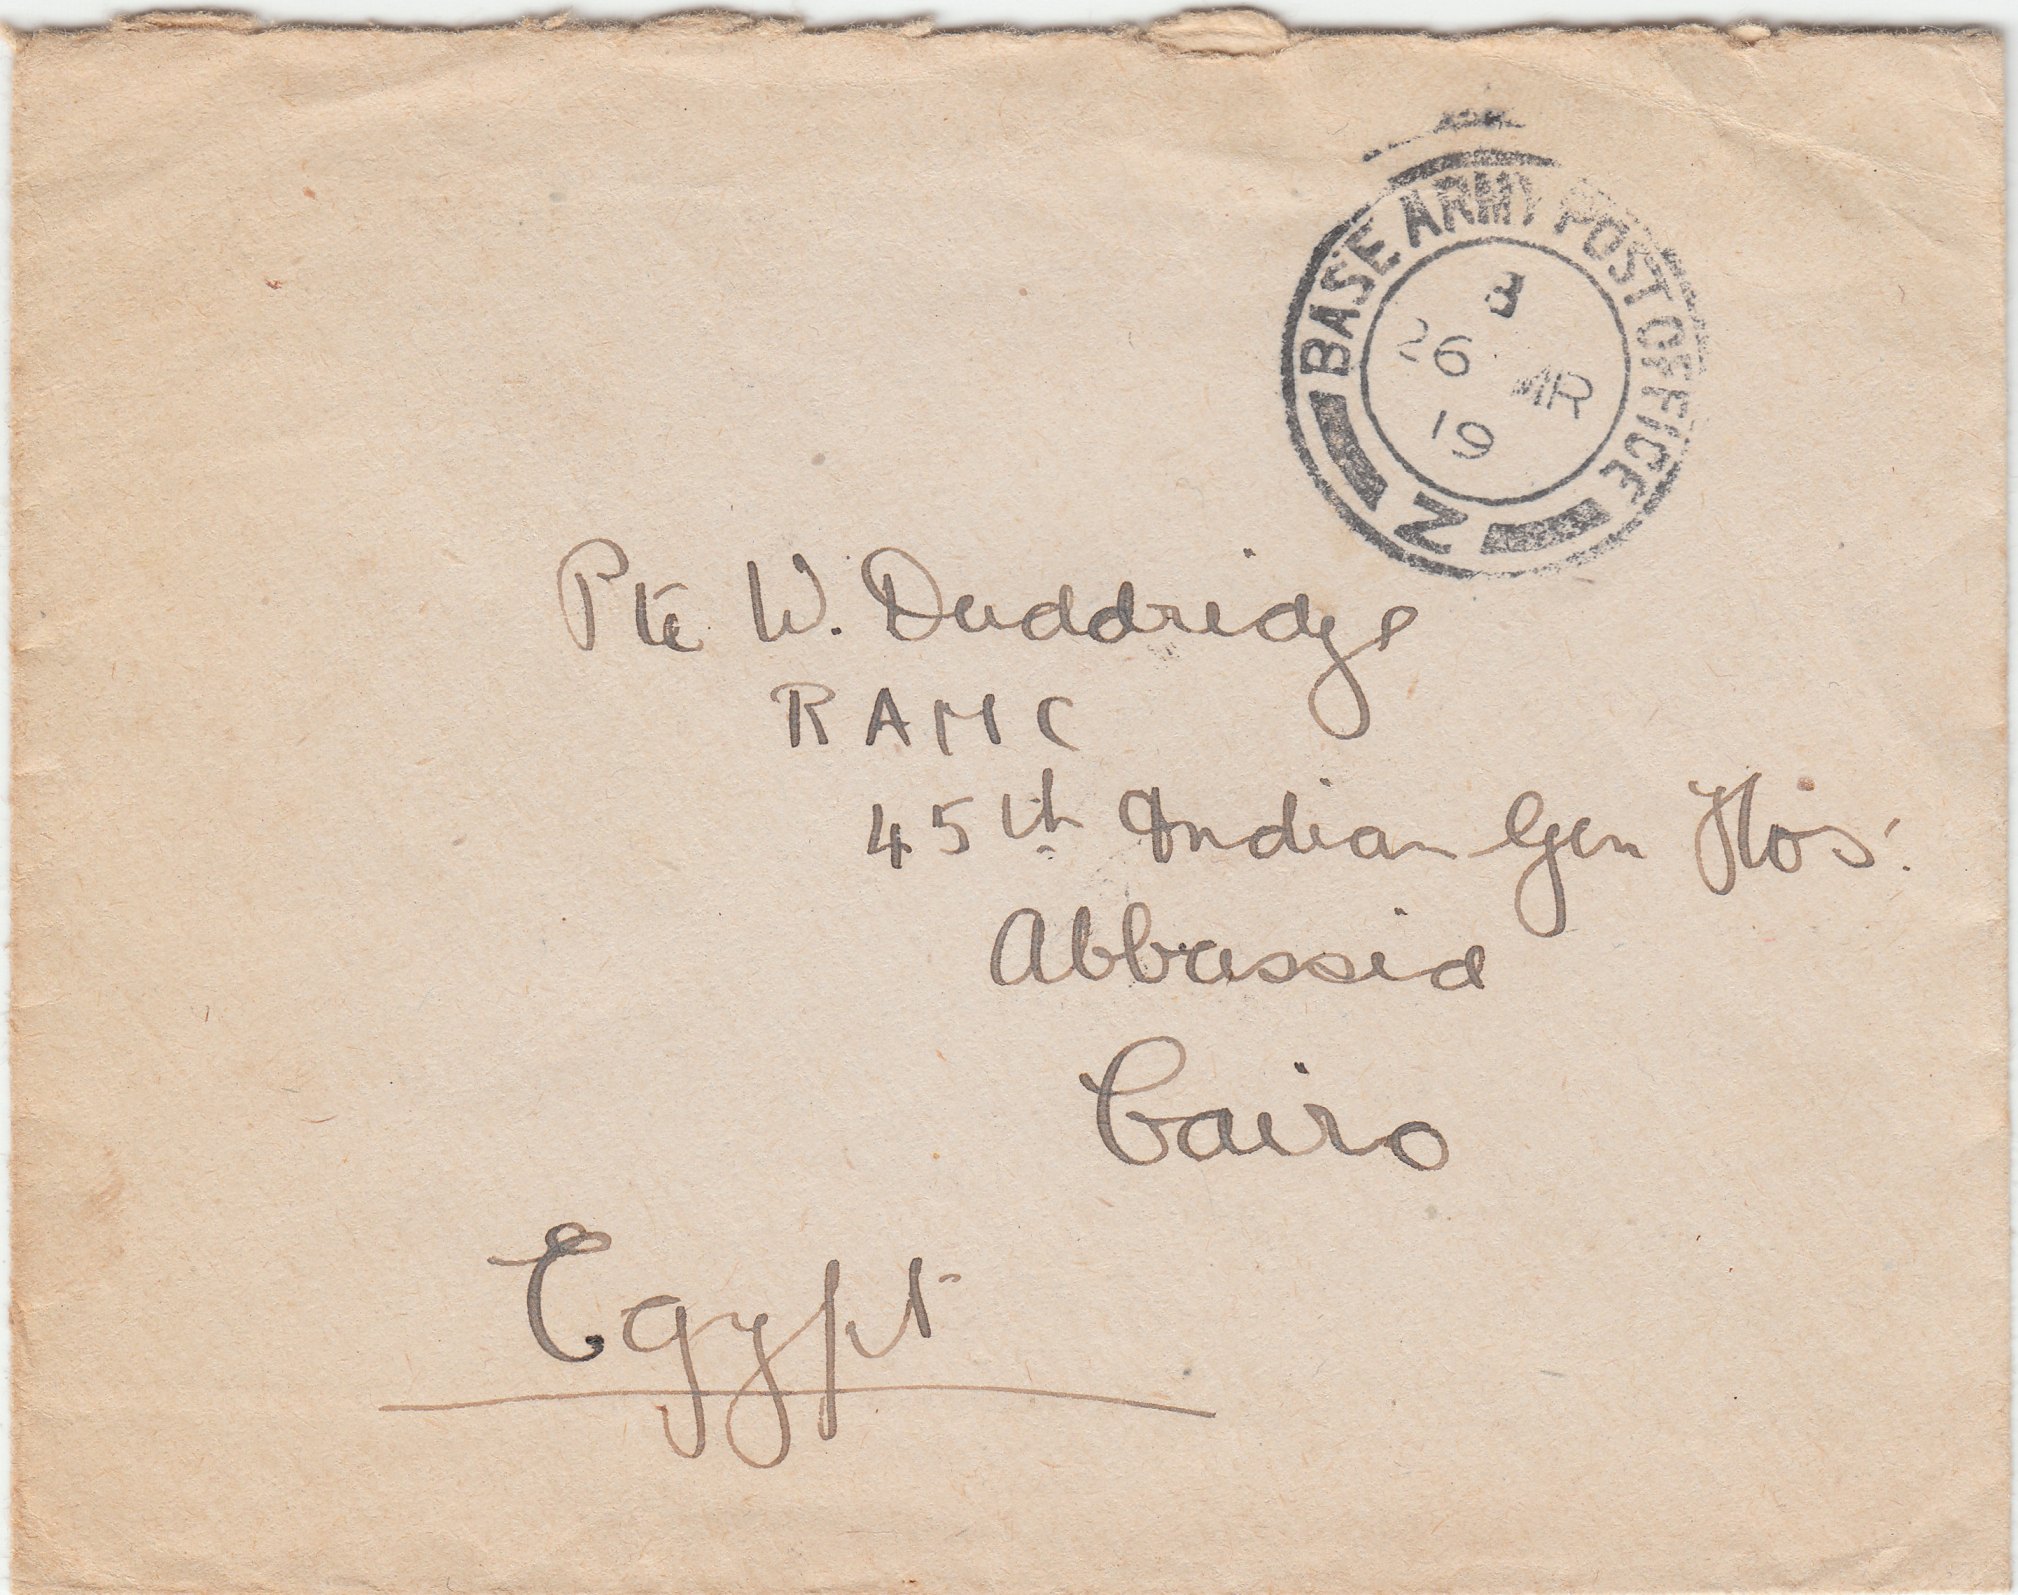 BASE ARMY POST OFFICE
26 MR
19
Z
Pte W. Duddridge
RAMC
45th Indian Gen Hos.
Abbassia
Cairo
Egypt